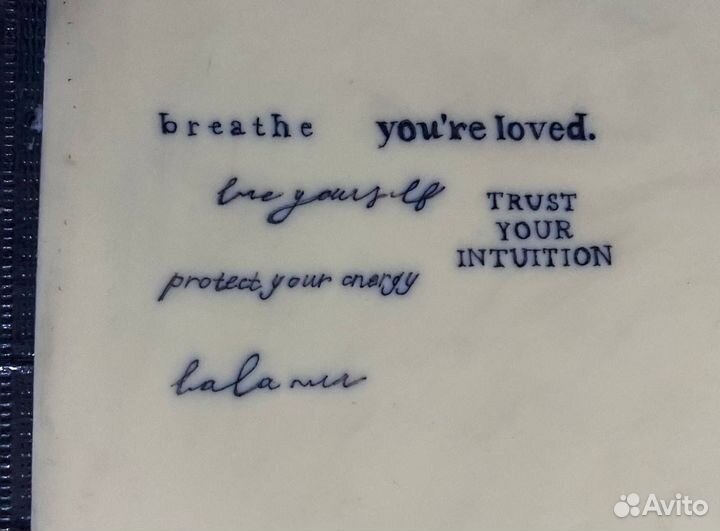 breathe
you're loved.
love yourself
TRUST
YOUR
INTUITION
protect your energy
balance
Avito